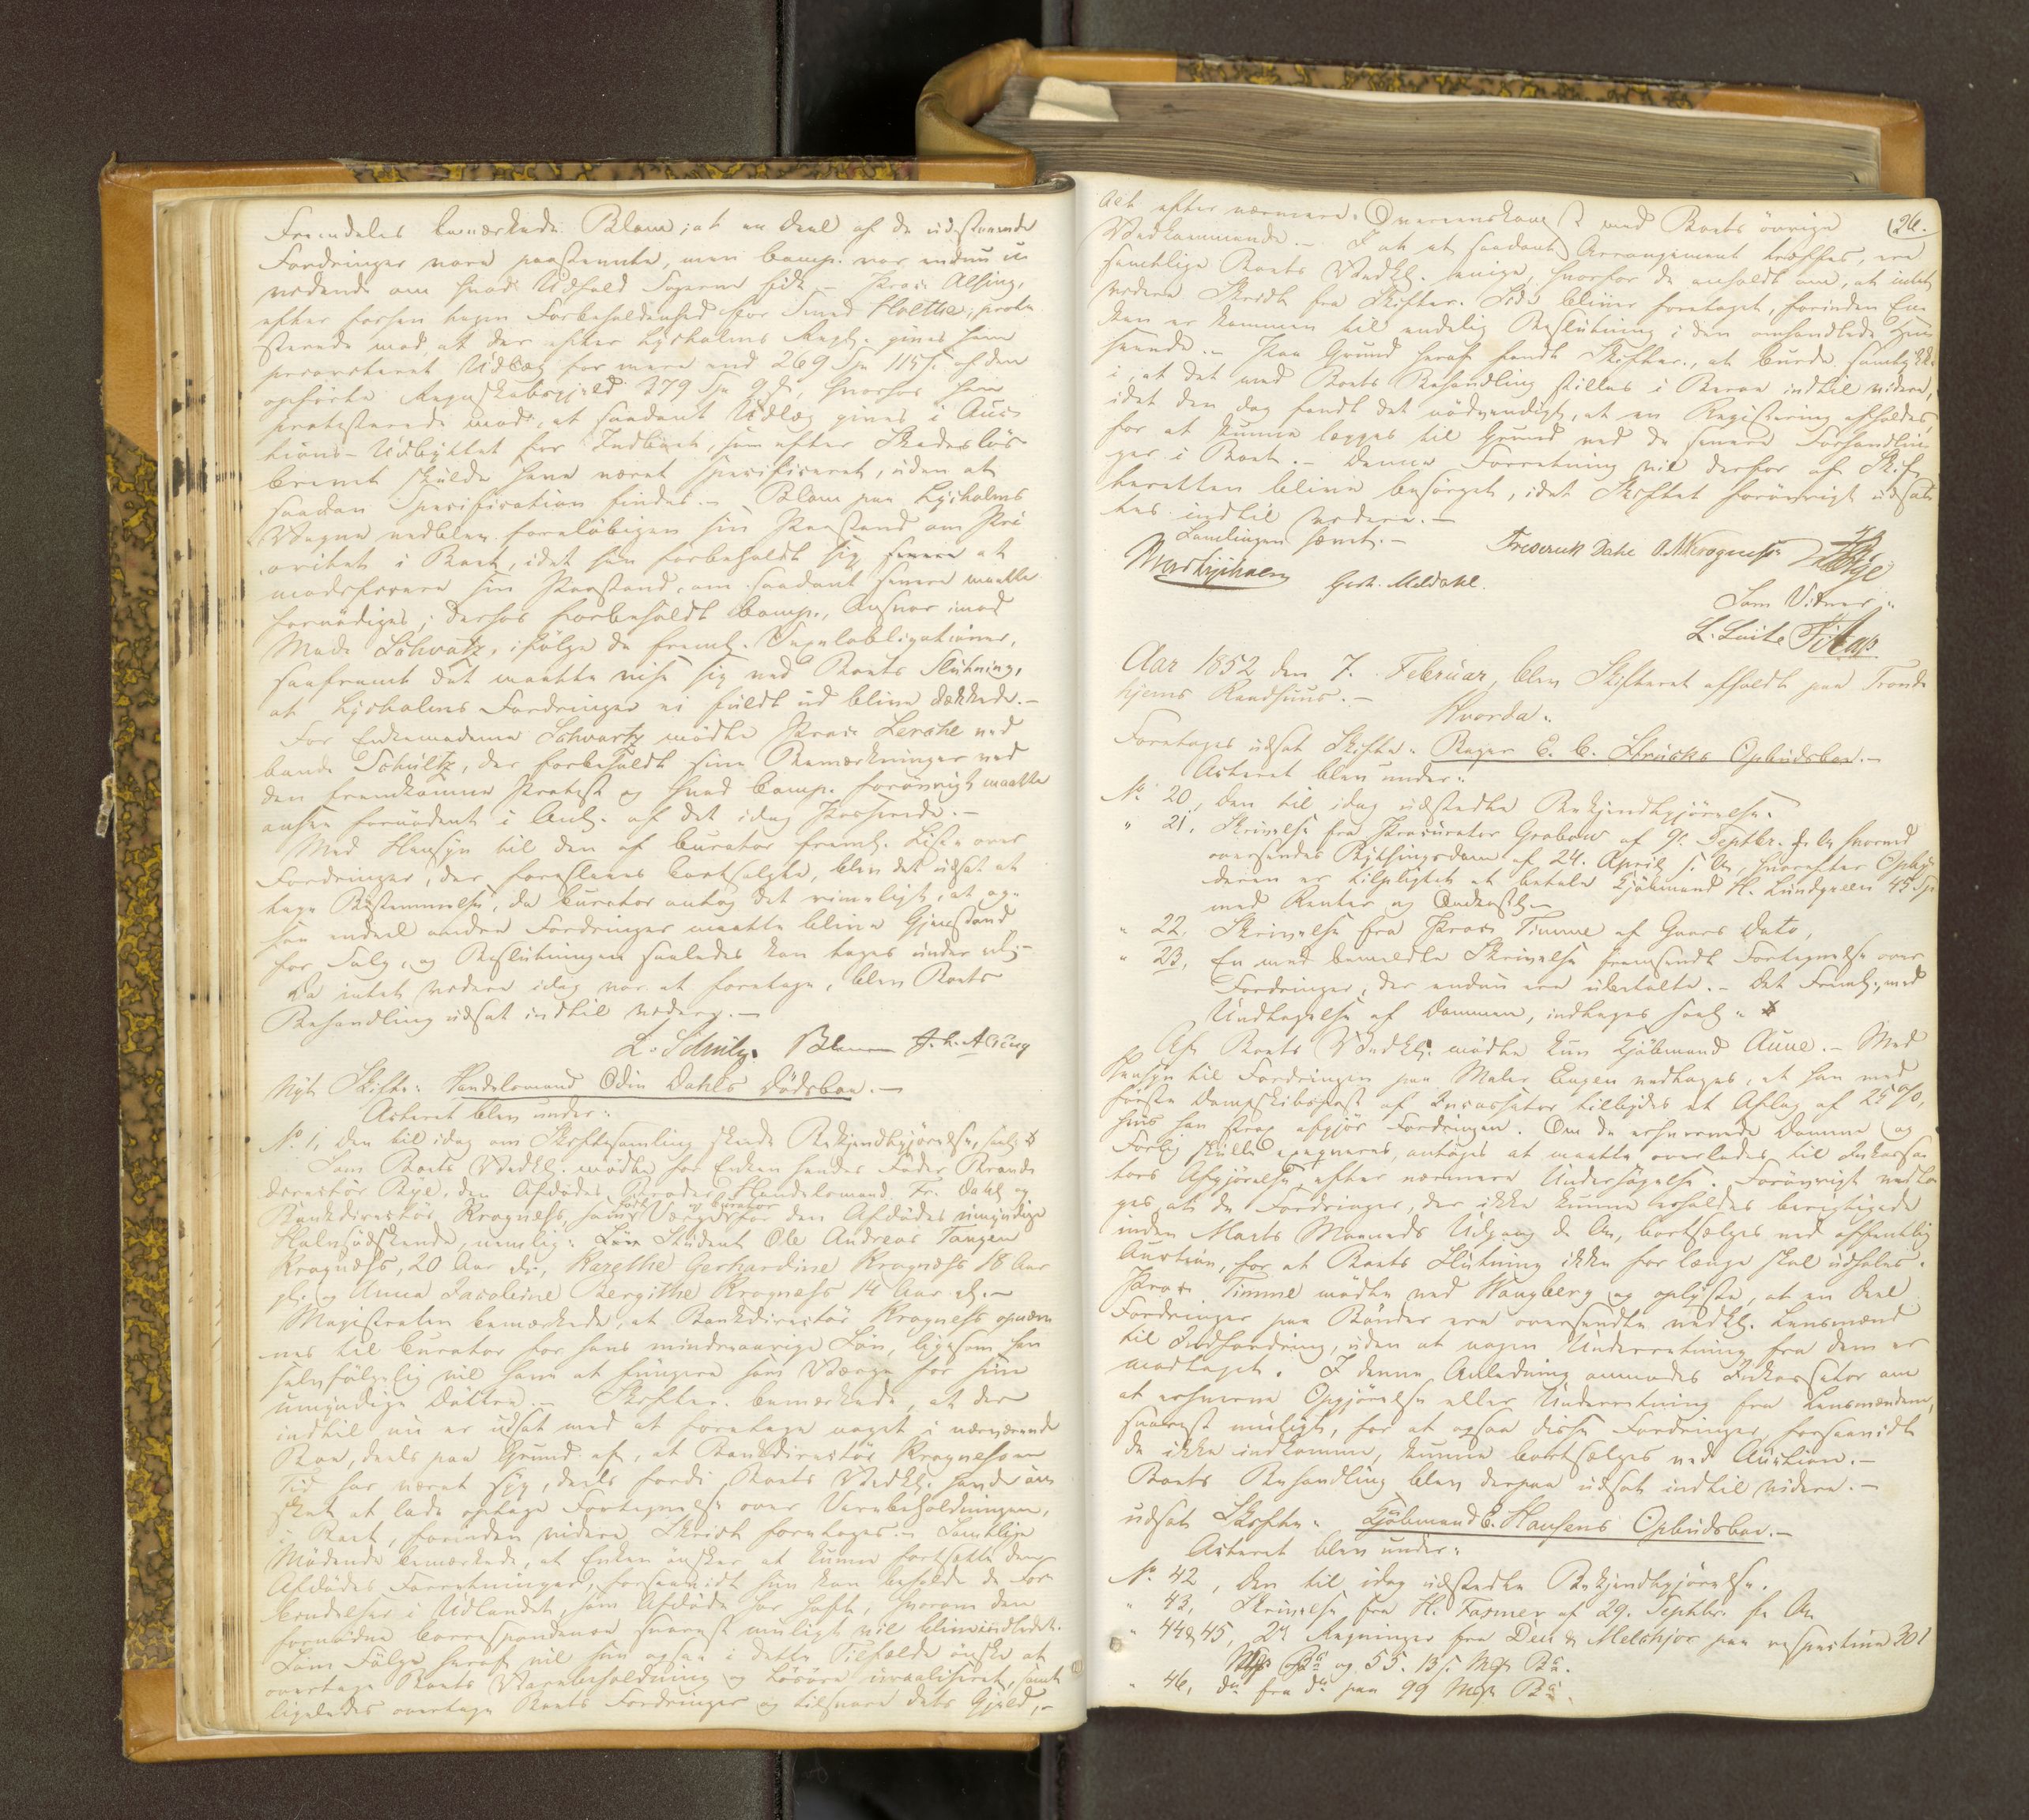 Fremdeles bemærkede Blom, at en Deel af de udestaaende
Fordringer vare paastevnte, men Comp. var endnu u
vidende om hvad Udfald Sagerne fik. – Proc. Alsing,
efter forhen tagen Forbeholdenhed for Smed Holthe, prote
sterede mod, at der efter Lysholms Regl. gives ham
prioriteret Udlæg for mere end 269 Spd 115 s. af den
opførte Regnskabsgjeld 379 Spd 9 s., hvorhos han
protesterede mod, at saadant Udlæg gives i Auc-
tions-Udbyttet for Indboet, som efter Skadeslös
brevet skulde have været specificeret, uden at
saadan Specification findes. – Blom paa Lysholms
Vegne vedblev foreløbigen sin Paastand om Pri
oritet i Boet, idet han forbeholdt sig at
modificere sin Paastand, om saadant senere maatte
fornødiges; derhos forbeholdt Comp., Ansvar imod
Mad. Schwartz, ifølge de freml. Panteobligationer,
saafremt det maatte vise sig ved Boets Slutning,
at Lysholms Fordringer ei fuldt ud blive dækkede. –
For Enkemadame Schwartz mødte Proc. Lerche ved
Schultz, der forbeholdt sine Bemærkninger ved
den fremkomne Protest og hvad Comp. forøvrigt maatte
ansee fornødent i Anl. af det idag Passerede. –
Med Hensyn til den af Curator freml. Liste over
Fordringer, der foreslaaes bortsolgte, blev det udsat at
tage Bestemmelse, da Curator antog det rimeligt, at og-
saa endeel andre Fordringer maatte blive Gjenstand
for Salg, og Beslutningen saaledes kan tages under et. –
Da intet videre idag var at foretage, blev Boets
Behandling udsat indtil videre. –
L. Schultz. Blom J. L. Alsing
Nyt Skifte: Handelsmand Odin Dahls Dødsboe. –
Acteret blev under:
No 1, den til idag om Skiftesamling skede Bekjendtgjørelse,
Som Boets Vedkl. mødte for Enken hendes Fader Brand-
directør Bye, den Afdødes Broder Handelsmand Fr. Dahl og
Bankdirectør Krogness, som født Værge og Curator for den Afdødes umyndige
Halvsødskende, nemlig: Student Ole Andreas Tangen
Krogness, 20 Aar gl., Karethe Gerhardine Krogness 18 Aar
gl. og Anna Jacobine Bergithe Krogness 14 Aar gl. –
Magistraten bemærkede, at Bankdirectør Krogness opnævn
nes til Curator for hans mindreaarige Søn, ligesom han
selvfølgelig vil have at fungere som Værge for sine
umyndige Døttre. – Skifter. bemærkede, at der
indtil nu er udsat med at foretage noget i nærværende
Boe, deels paa Grund af, at Bankdirectør Krogness en
Tid har været syg, deels fordi Boets Vedkl. havde øn
sket at lade optage Fortegnelse over Varebeholdningen,
i Boet, forinden videre Skridt foretages. – Samtlige
Mødende bemærkede, at Enken ønsker at kunne fortsætte den
Afdødes Forretninger, forsaavidt hun kan beholde de For-
bindelser i Udlandet, som Afdøde har havt, hvorom den
fornødne Correspondence snarest muligt vil blive indledet.
Som Følge heraf vil hun ogsaa i dette Tilfælde ønske at
overtage Boets Varebeholdning og Løsøre urealiseret, samt
ligeledes overtage Boets Fordringer og tilsvare dets Gjeld, –
26.
Alt efter nærmere Overeenskomst med Boets øvrige
Vedkommende. – I at et saadant Arrangement træffes, ere
samtlige Boets Vedkl. enige, hvorfor de anholdt om, at intet
videre Skridt fra Skifter. Side bliver foretaget, forinden En-
ken er kommen til endelig Beslutning i den omhandlede Hen
seende. – Paa Grund heraf fandt Skifter., at burde samtykke
i, at det med Boets Behandling stilles i Beroe indtil videre,
idet den dog fandt det nødvendigt, at en Registrering afholdes,
for at kunne lægges til Grund ved de senere Forhandlin
ger i Boet. – Denne Forretning vil derfor af Skif-
teretten blive besørget, idet Skiftet forøvrigt udsat
tes indtil videre. –
Samlingen hævet. –
Frederik Dahl O. Krogness Bye
Gerh. Meldahl.
Som Vidner:
L. Luite
Aar 1852 den 7. Februar, blev Skifteret afholdt paa Trond
hjems Raadhuus. –
Hvorda:
Foretages udsat Skifte: Bager E. C. Strücks Opbudsboe. –
Acteret blev under:
No 20, den til idag udstedte Bekjendtgjørelse.
" 21, Skrivelse fra Procurator Grabow af 9de Septbr. f. A. hvorved
oversendes Bythingsdom af 24. April s. A., hvorefter Opby-
deren er tilpligtet at betale Kjøbmand H. Lundgreen 45 Sp
med Renter og Omkostn. –
" 22, Skrivelse fra Proc. Timme af Gaars Dato,
" 23, En med bemeldte Skrivelse fremsendt Fortegnelse over
Fordringer, der endnu ere ubetalte. – Det Freml., med
Undtagelse af Dommen, indtages
Af Boets Vedkl. mødte kun Kjøbmand Aune. – Med
Hensyn til Fordringen paa Maler Engen vedtages, at han med
første Dampskibspost af Incassator tilbydes et Afslag af 25 %,
hvis han strax afgjør Fordringen. Om de erhvervede Domme og
Forlig skulle exeqveres, antoges at maatte overlades til Inkassa
tors Afgjørelse, efter nærmere Undersøgelse. Forøvrigt vedto
ges, at de Fordringer, der ikke kunne erholdes berigtigede
inden Marts Maaneds Udgang d. A., bortsælges ved offentlig
Auction, for at Boets Slutning ikke for længe skal udhales.
Proc. Timme mødte ved Wangberg og oplyste, at en Deel
Fordringer paa Bønder ere oversendte vedkl. Lensmænd
til Indfordring, uden at nogen Underretning fra dem er
modtaget. I denne Anledning anmodes Inkassator om
at erhverve Opgjørelse eller Underretning fra Lensmændene,
snarest muligt, for at ogsaa disse Fordringer, forsaavidt
de ikke indkomme, kunne bortsælges ved Auction. –
Boets Behandling blev derpaa udsat indtil videre. –
udsat Skifte: Kjøbmand E. Hansens Opbudsboe. –
Acteret blev under:
No 42, den til idag udstedte Bekjendtgjørelse.
" 43, Skrivelse fra H. Fasmer af 29. Septbr. f. A.
" 44 & 45, 2de Regninger fra Deu & Melchjor paa respective 301
Mk Bco og 55. 13 s. Mk Bco.
" 46, do fra do paa 99 Mk Bco.